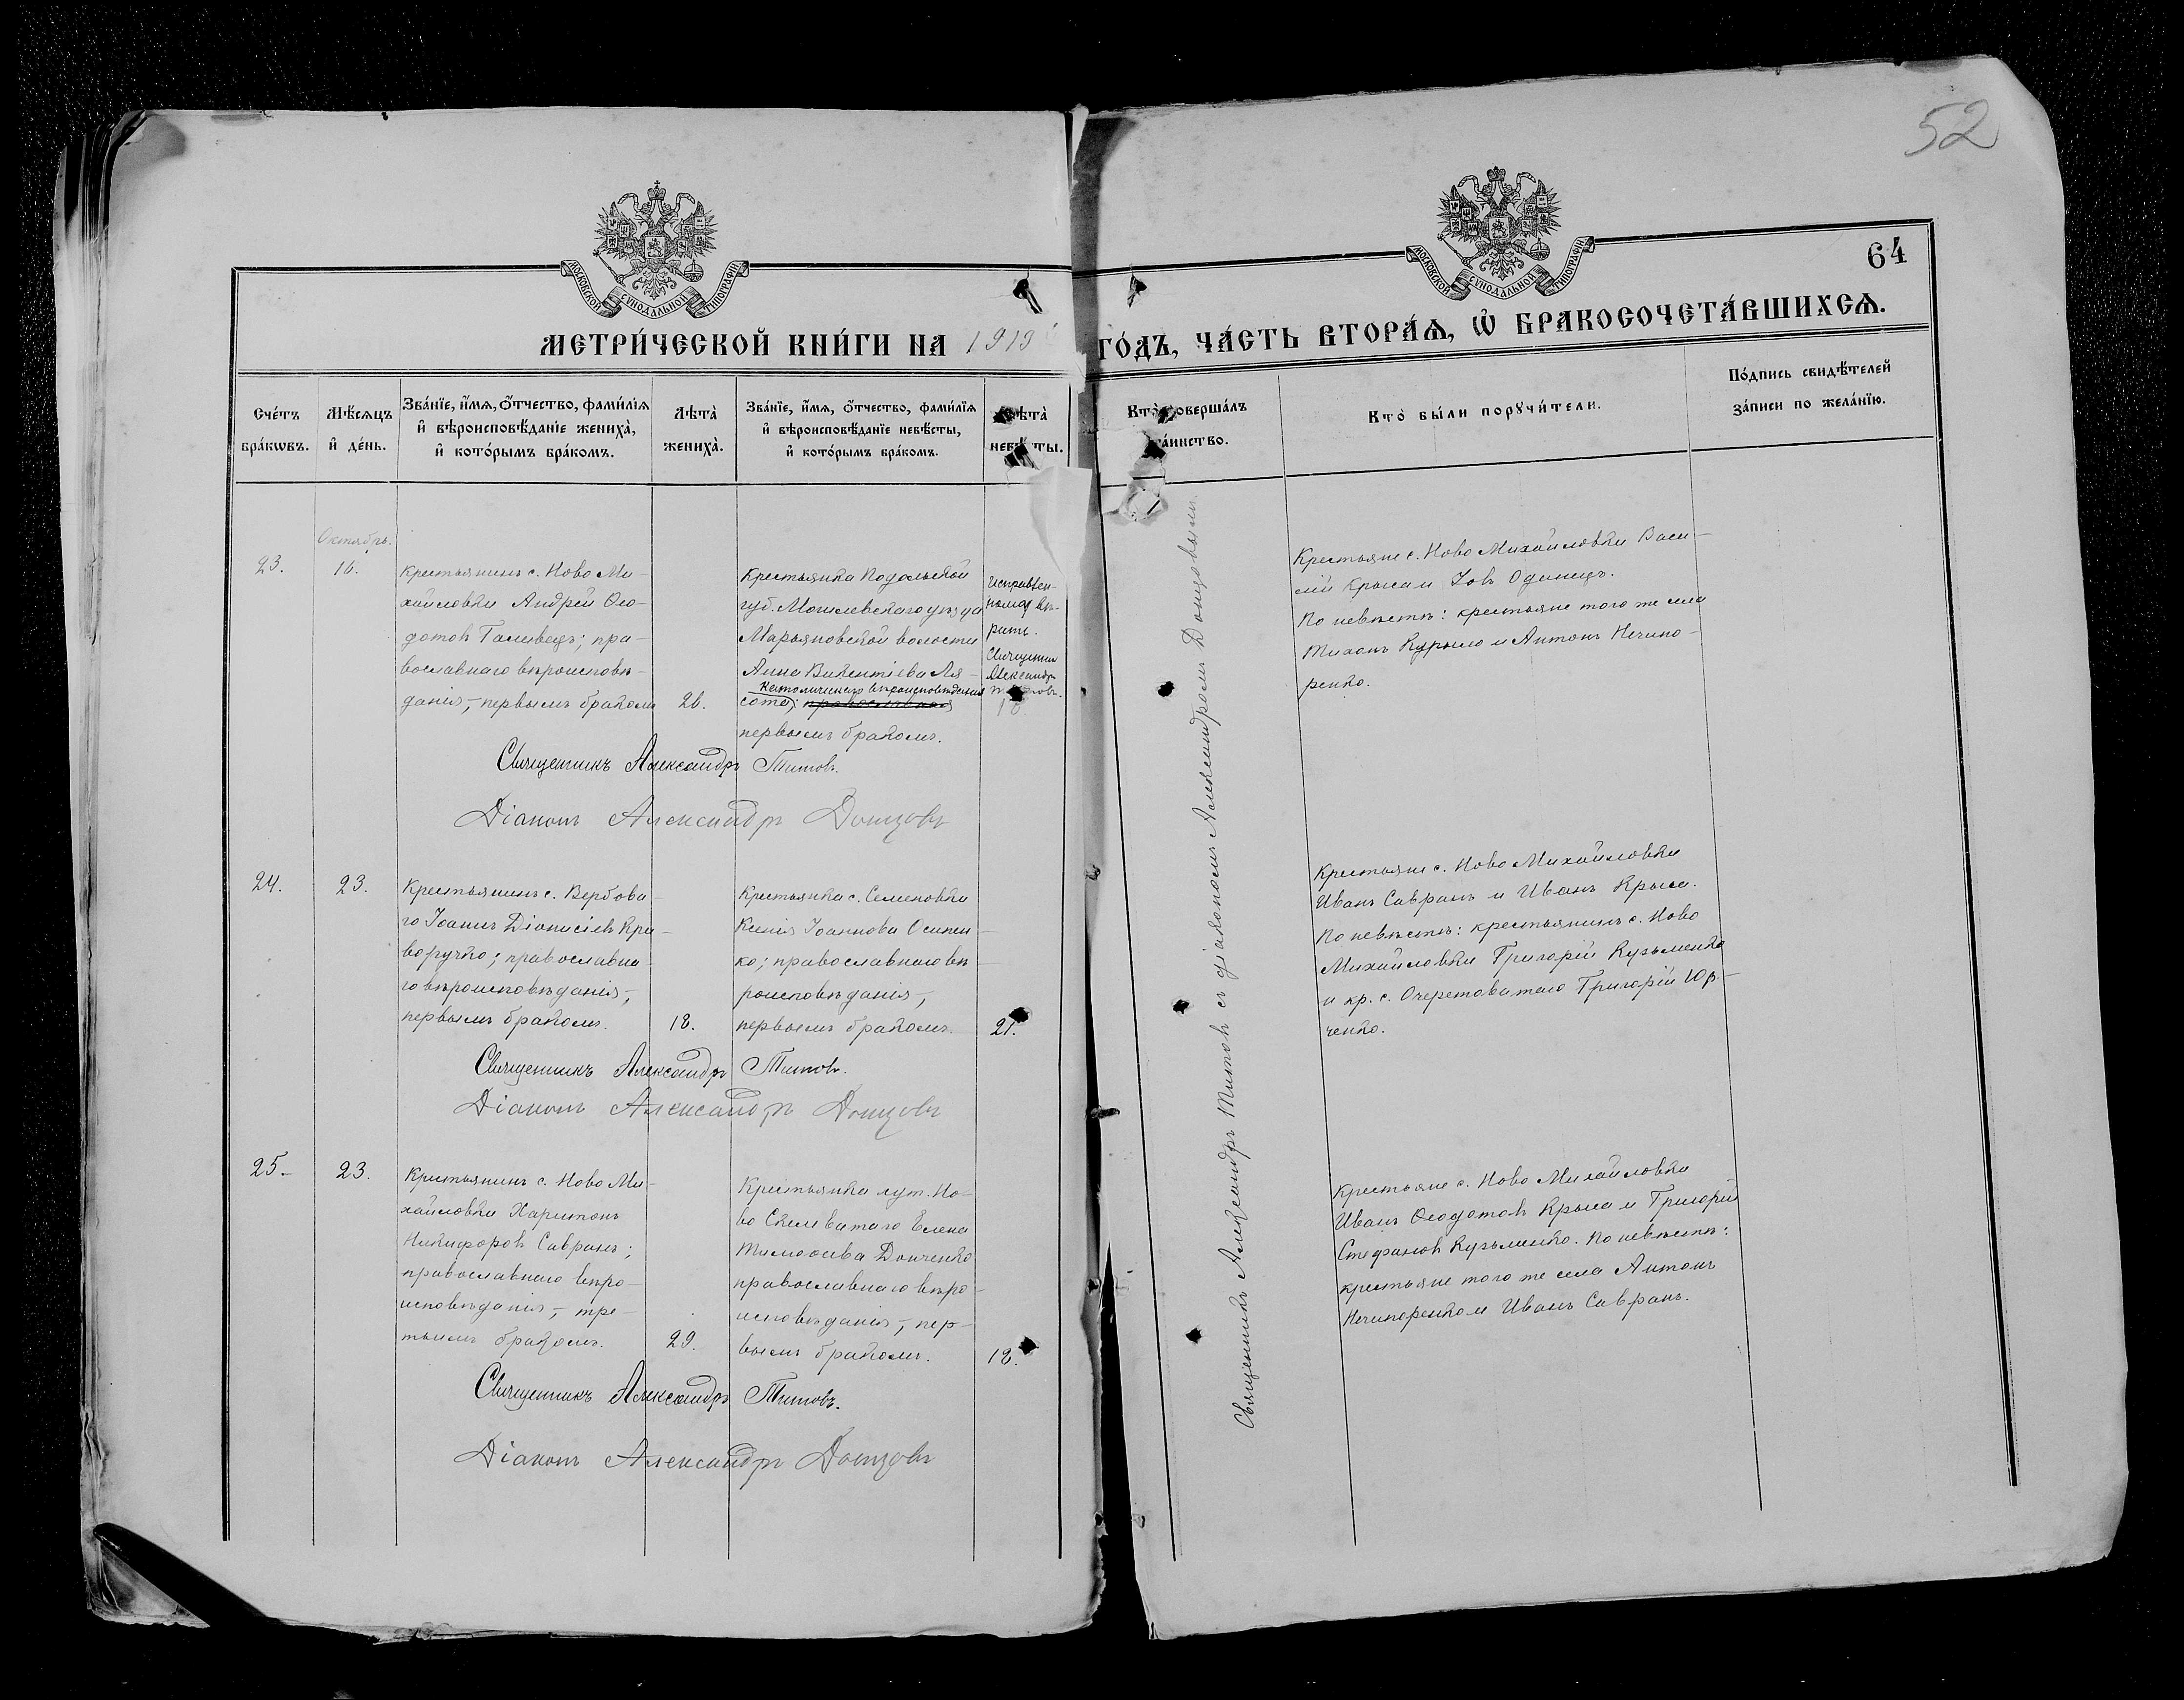 52
64
МОСКОВСКОЙ СѴНОДАЛЬНОЙ ТИПОГРАФІИ
МОСКОВСКОЙ СѴНОДАЛЬНОЙ ТИПОГРАФІИ
МЕТРИ́ЧЕСКОЙ КНИ́ГИ НА 1919 ГО́ДЪ, ЧА́СТЬ ВТОРА́Ѧ, Ѡ҆ БРАКОСОЧЕТА́ВШИХСѦ.
Сче́тъ бра́кѡвъ.
Мѣ́сѧцъ и҆ де́нь.
Зва́нїе, и҆́мѧ, ѻ҆́тчество, фами́лїѧ и҆ вѣроисповѣ́данїе жениха̀, и҆ кото́рымъ бра́комъ.
Лѣта̀ жениха̀.
Зва́нїе, и҆́мѧ, ѻ҆́тчество, фами́лїѧ и҆ вѣроисповѣ́данїе невѣ́сты, и҆ кото́рымъ бра́комъ.
Лѣта̀ невѣ́сты.
Кто̀ соверша́лъ та́инство.
Кто̀ бы́ли порꙋчи́тели.
По́дпись свидѣ́телей за́писи по жела́нїю.
Октябрь.
23.
16.
Крестьянинъ с. Ново Ми-
хайловки Андрей Ѳео-
дотовъ Галивецъ; пра-
вославнаго вѣроисповѣ-
данія,- первымъ бракомъ
26.
Крестьянка Подольской
губ. Могилевскаго уѣзда
Марьяновской волости
Анна Викентіева Ля-
католическаго вѣроисповѣданія
сота;
первымъ бракомъ.
исправлен-
ному вѣ-
рить.
Священникъ
Александръ
18.
Священникъ Александръ Титовъ.
Діаконъ Александръ Донцовъ
Крестьяне с. Ново Михайловки Васи-
лій Крыса и Іовъ Одинецъ.
По невѣстѣ: крестьяне того же села
Тихонъ Курыло и Антонъ Нечипо-
ренко.
24.
23.
Крестьянинъ с. Вербова-
го Іоаннъ Діонисіевъ Кри-
воручко; православна-
го вѣроисповѣданія,
первымъ бракомъ.
18.
Крестьянка с. Семеновки
Ксенія Іоаннова Осипен-
ко; православнаго вѣ-
роисповѣданія,
первымъ бракомъ.
21.
Священникъ Александръ Титовъ.
Діаконъ Александръ Донцовъ
Крестьяне с. Ново Михайловки
Иванъ Савранъ и Иванъ Крыса.
По невѣстѣ: крестьянинъ с. Ново
Михайловки Григорій Кузьменко
и кр. с. Очеретоватаго Григорій Юр-
ченко.
25-
23.
Крестьянинъ с. Ново Ми-
хайловки Харитонъ
Никифоровъ Савранъ;
православнаго вѣро-
исповѣданія,- тре-
тьимъ бракомъ.
29.
Крестьянка хут. Но-
во Скелеватаго Елена
Тимоѳеева Донченко
православнаго вѣро-
исповѣданія,- пер-
вымъ бракомъ.
18.
Священникъ Александръ Титовъ.
Діаконъ Александръ Донцовъ
Крестьяне с. Ново Михайловки
Иванъ Ѳеодотовъ Крыса и Григорій
Стефановъ Кузьменко. По невѣстѣ:
крестьяне того же села Антонъ
Нечипоренко и Иванъ Савранъ.
Священникъ Александръ Титовъ съ діакономъ Александромъ Донцовымъ.